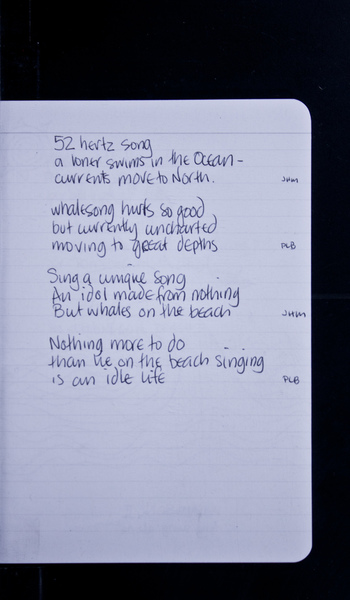 52 hertz song
a loner swims in the Ocean -
currents move to North.
JHM
whalesong hurts so good
but currently uncharted
moving to great depths
PLB
Sing a unique song
An idol made from nothing
But whales on the beach
JHM
Nothing more to do
than lie on the beach singing
is an idle life
PLB